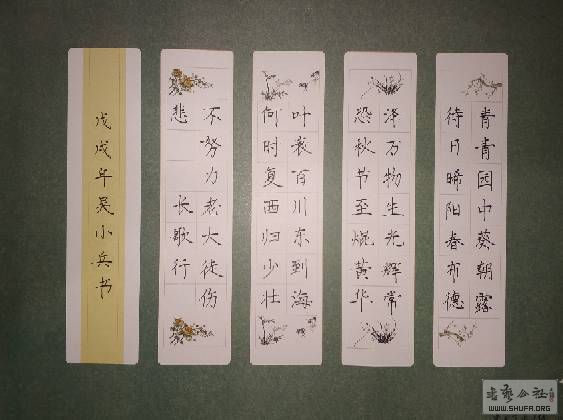 青青园中葵朝露
待日晞阳春布德
泽万物生光辉常
恐秋节至焜黄华
叶衰百川东到海
何时复西归少壮
不努力老大徒伤
悲
长歌行
戊戌年吴小兵书
WWW.SHUFA.ORG